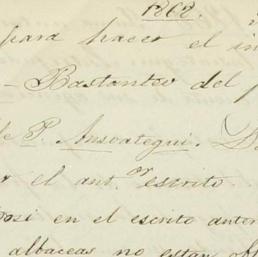 1862.
para hacer el in
- Bastanteo del p
de P. Ansoategui. D
r el ant.or escrito
posi en el escrito anter
albaceas no estan ob